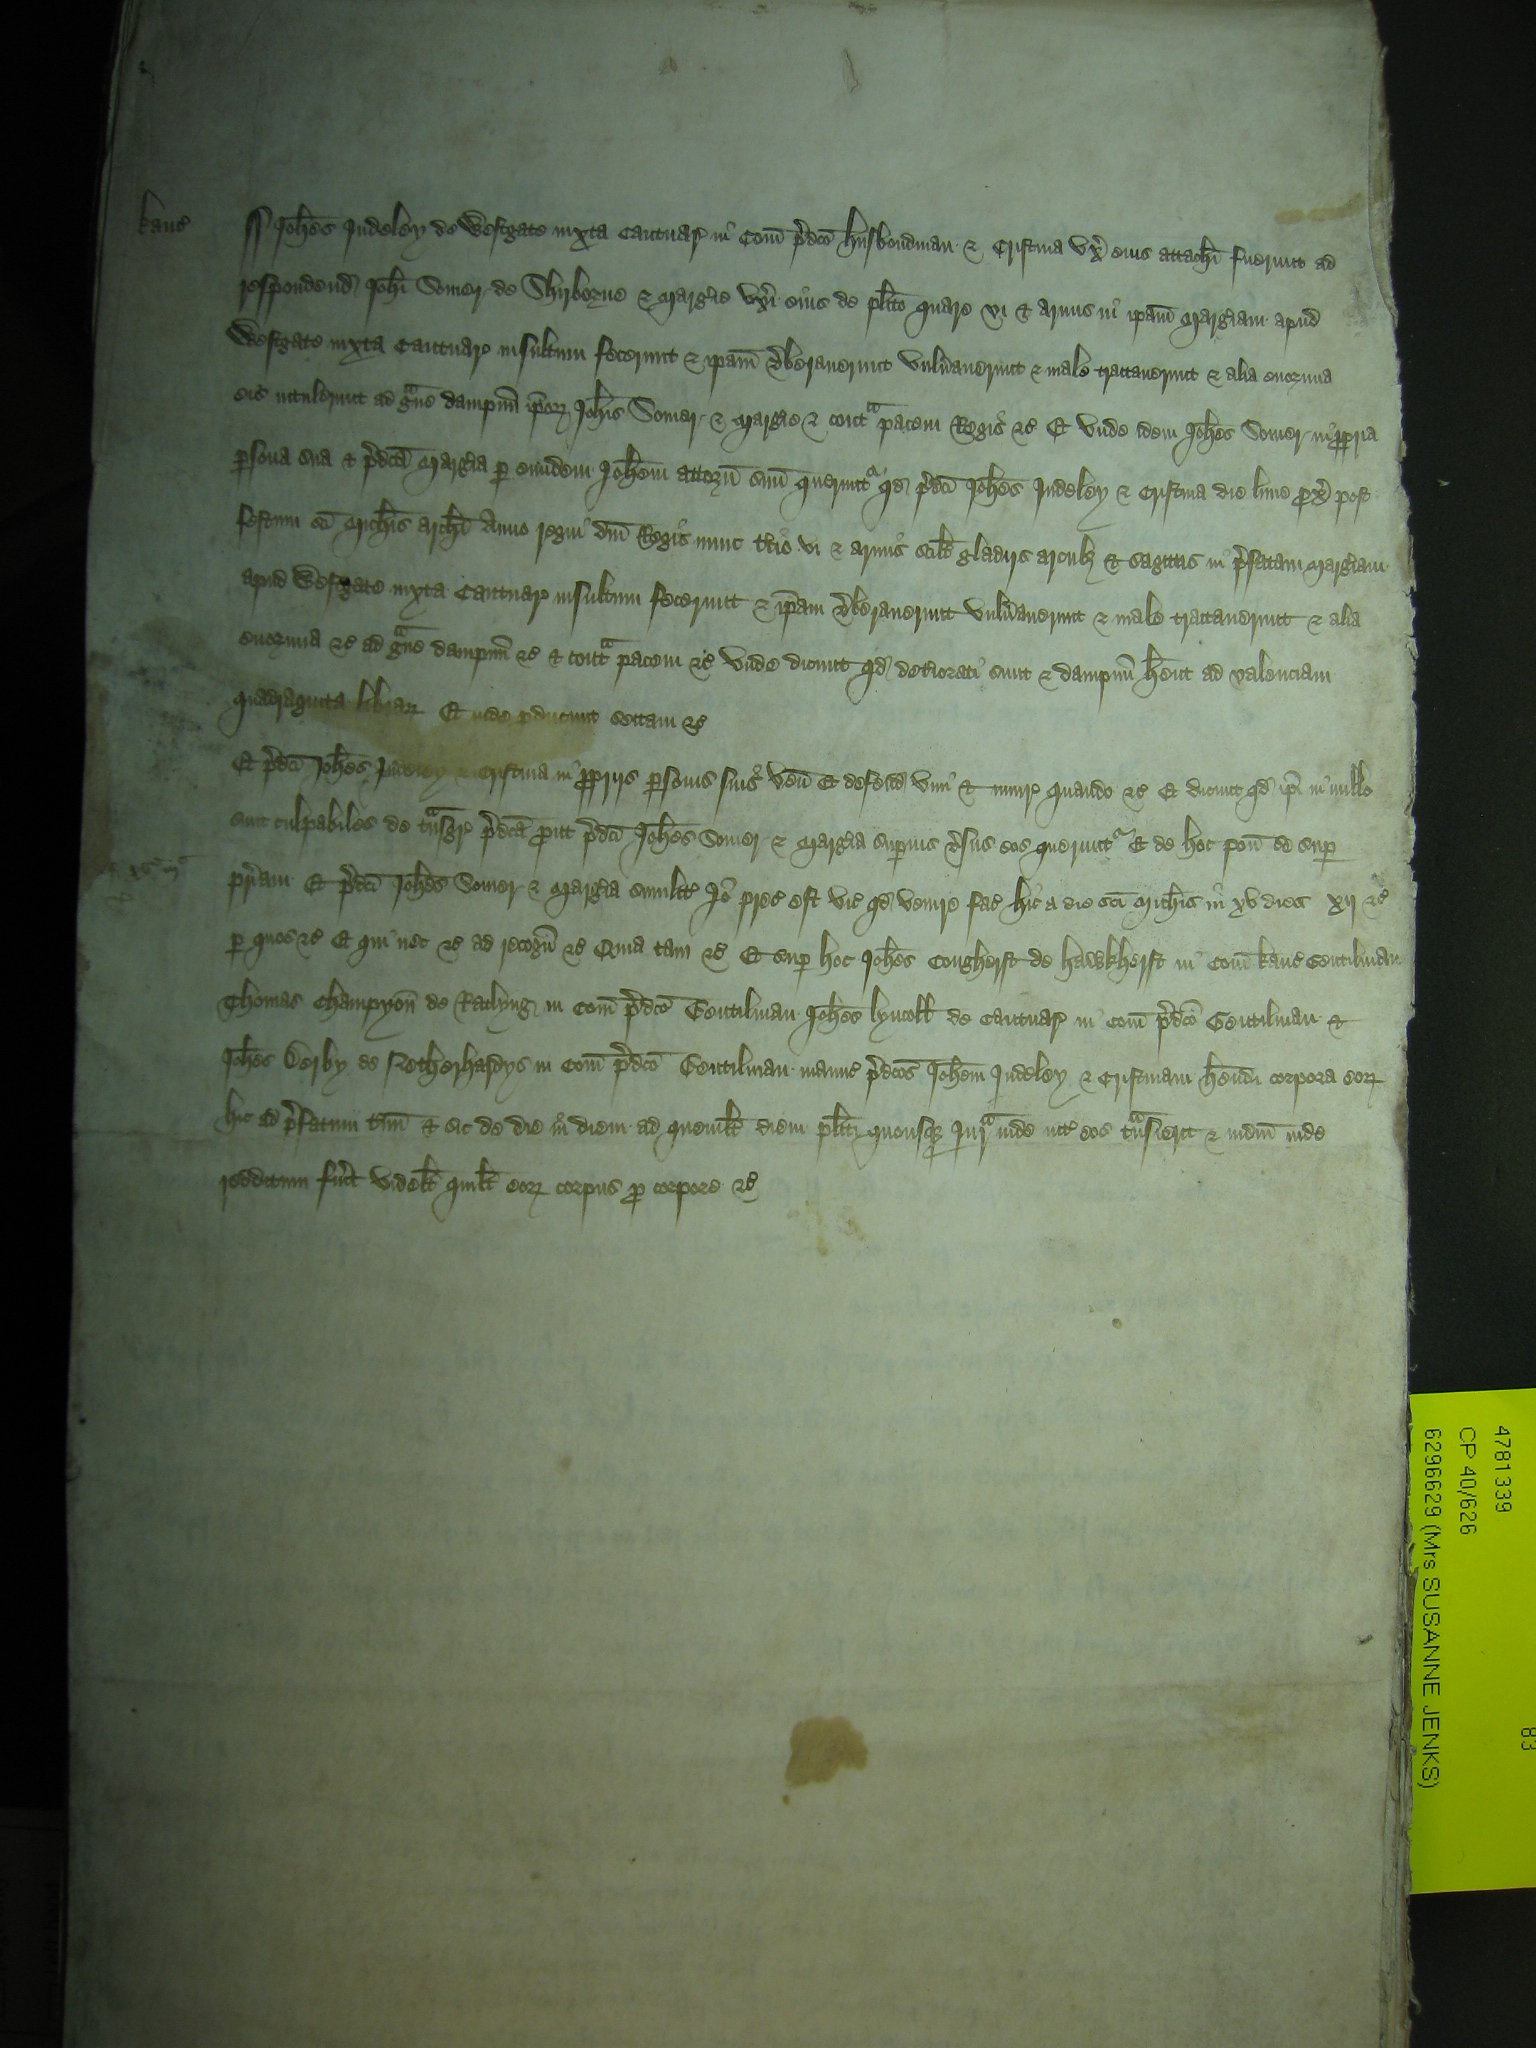 kanc
ss Joh̄es Judeley de Westgate iuxta Cantuar̄ in Com̄ p̄dc̄o husbondman & Cristina vx̄ eius attach̄ fuerunt ad
respondend̄ Joh̄i Somer de Shirborne & Marḡie vx̄i eius de pl̄ito quare vi & armis in ip̄am Marḡiam apud
Westgate iuxta Cantuar̄ insultum fecerunt & ip̄am v̄berauerunt vuln̄auerunt & male tractauerunt & alia enormia
eis intulerunt ad gᵃue dampnū ip̄oꝝ Joh̄is Somer & Marḡie & contᵃ pacem Regis &c Et vnde idem Joh̄es Somer in ꝓpria
ꝑsona sua & p̄dc̄a Marḡia ꝑ eundem Joh̄em attorn̄ suū queruntᵃ qd̄ p̄dc̄i Joh̄es Judeley & Cristina die lune ꝓx̄ post
festum sc̄i Mich̄is arch̄i Anno regni dn̄i Regis nunc t̄cio vi & armis scil̄t gladijs arcubȝ & sagittis in p̄fatam Marḡiam
apud Westgate iuxta Cantuar̄ insultum fecerunt & ip̄am v̄berauerunt vuln̄auerunt & male tractauerunt & alia
enormia &c ad gᵃue dampnū &c & contᵃ pacem &c vnde dicunt qd̄ det̄iorati sunt & dampnū h̄ent ad valenciam
quadraginta librarꝝ Et inde ꝓducunt sectam &c
Et p̄dc̄i Joh̄es Judeley & Cristina in ꝓprijs ꝑsonis suis ven̄ Et defend̄ vim & iniur̄ quando &c Et dicunt qd̄ ip̄i in nullo
sunt culpabiles de tᵃnsgr̄ p̄dc̄a ꝓut p̄dc̄i Joh̄es Somer & Marḡia suꝑius v̄sus eos queruntᵃ Et de hoc pon̄ se suꝑ
pr̄iam Et p̄dc̄i Joh̄es Somer & Marḡia similit̄ Jō prec̄ est vic̄ qd̄ venire fac̄ hic a die sc̄i Mich̄is in xv dies xij &c
ꝑ quos &c Et qui nec &c ad recogn̄ &c Quia tam &c Et suꝑ hoc Joh̄es Congherst de hawkherst in Com̄ kanc Gentilman
Thomas Champyon̄ de Ratlyng in Com̄ p̄dc̄o Gentilman Joh̄es lyncoll de Cantuar̄ in Com̄ p̄dc̄o Gentilman &
Joh̄es Derby de Netherhardys in Com̄ p̄dc̄o Gentilman manuc̄ p̄dc̄os Joh̄em Judeley & Cristinam h̄endi corpora eoꝝ
hic ad p̄fatum t̄m & sic de die in diem ad queml̄t diem pl̄iti quousqȝ Jurᵃ inde int̄ eos tᵃnsierit & iudm̄ inde
redditum fu̅it videl̄t quil̄t eoꝝ corpus ꝓ corpore &c
4781339
CP 40/626
6296629 (Mrs SUSANNE JENKS)
83